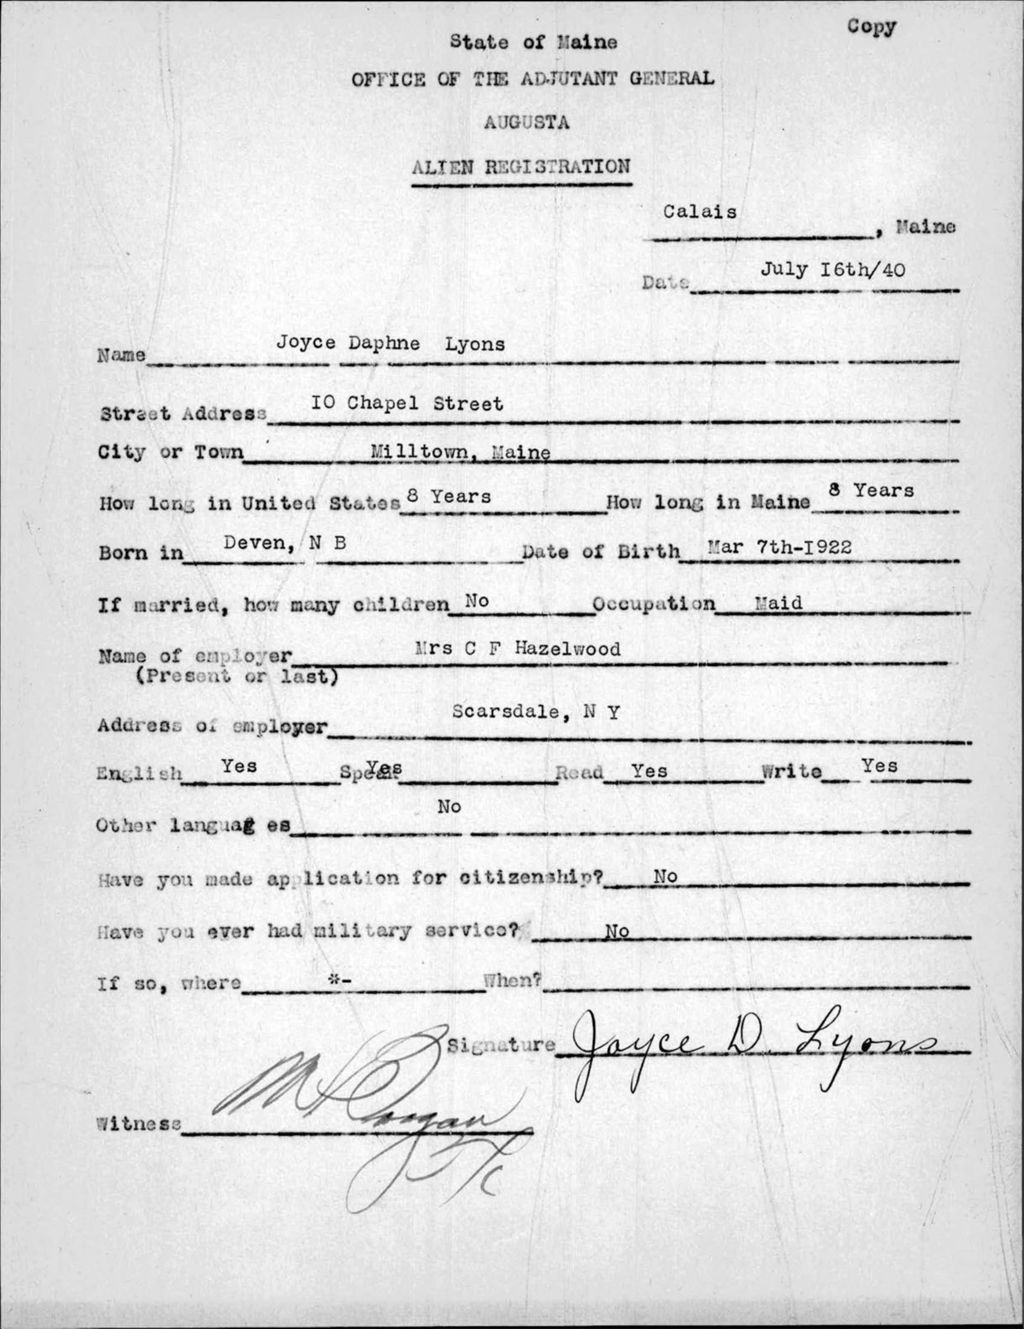 Copy
State of Maine
OFFICE OF THE ADJUTANT GENERAL
AUGUSTA
ALIEN REGISTRATION
Calais, Maine
Date July I6th/40
Name Joyce Daphne Lyons
Street Address IO Chapel Street
City or Town Milltown, Maine
How long in United States 8 Years How long in Maine 8 Years
Born in Deven, N B Date of Birth Mar 7th-I922
If married, how many children No Occupation Maid
Name of employer Mrs C F Hazelwood
(Present or last)
Address of employer Scarsdale, N Y
English Yes Speak Yes Read Yes Write Yes
Other languag es No
Have you made application for citizenship? No
Have you ever had military service? No
If so, where *- When?
Signature Joyce D. Lyons
Witness